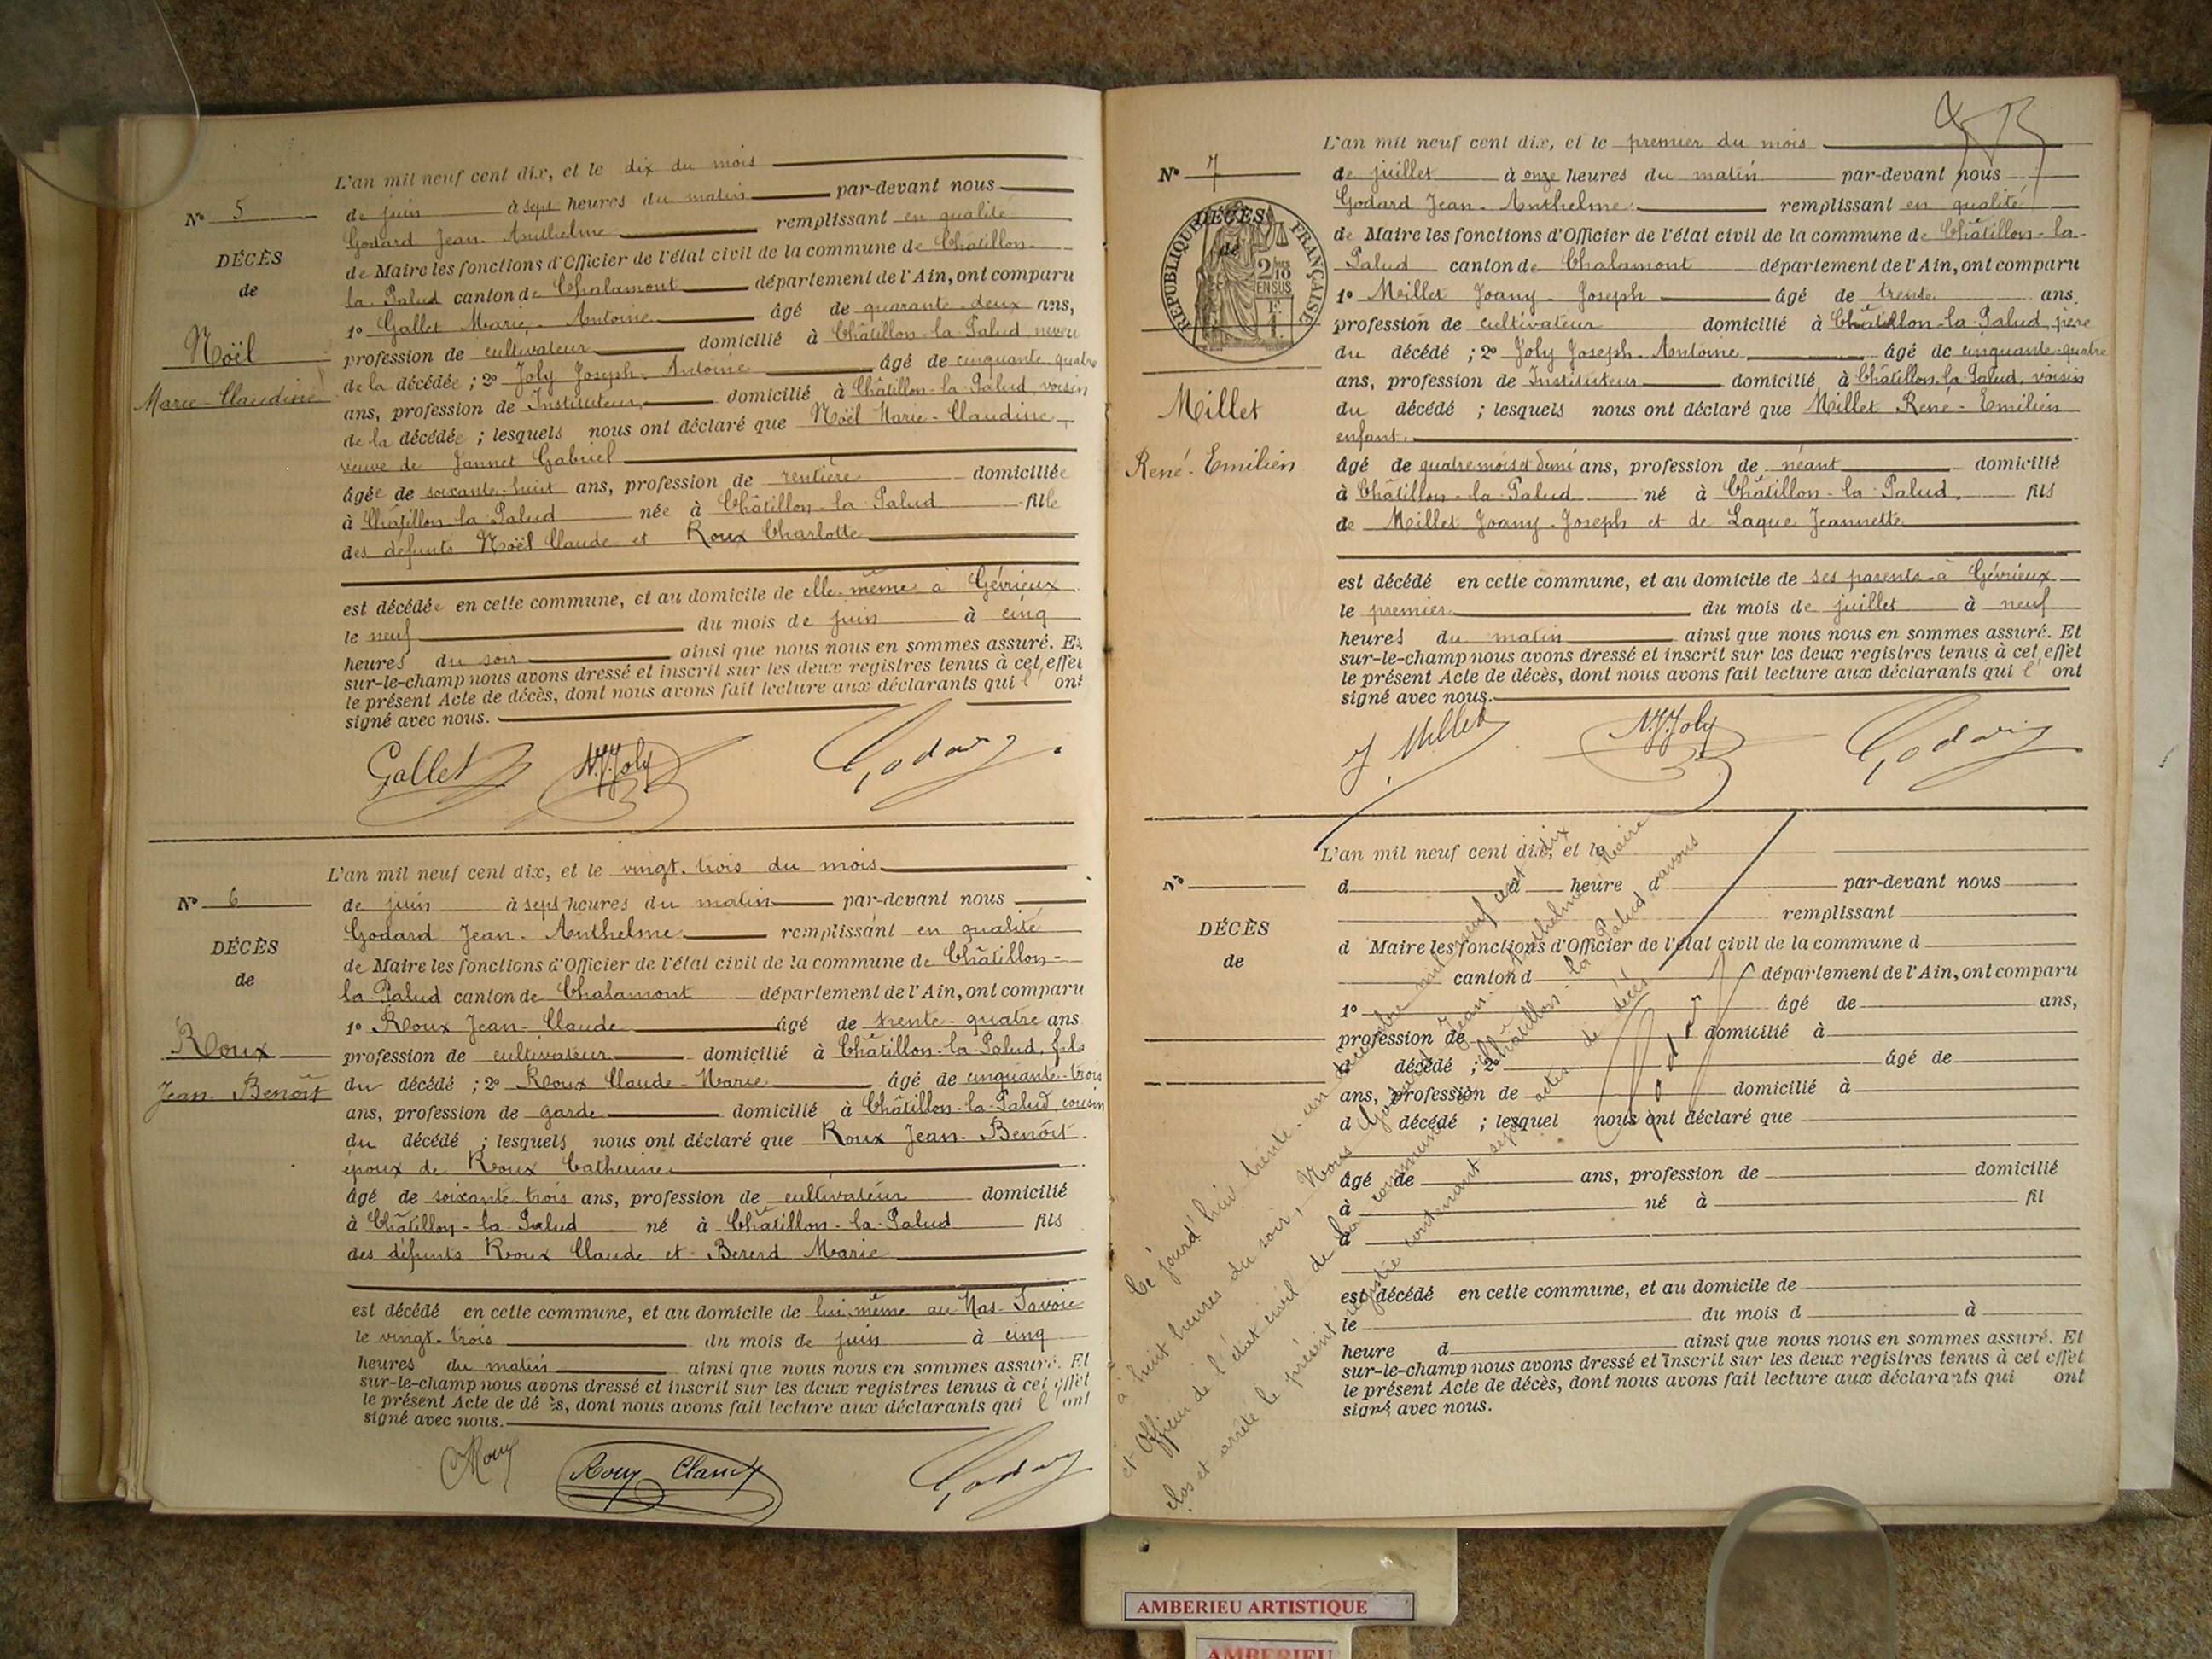 L'an mil neuf cent dix, et le dix du mois
N° 5
de juin à sept heures du matin par-devant nous
Godard Jean-Anthelme remplissant en qualité
DÉCÈS
de
de Maire les fonctions d'Officier de l'état civil de la commune de Châtillon-
la-Palud canton de Chalamont département de l'Ain, ont comparu
1° Gallet Marie-Antoine âgé de quarante-deux ans,
Noël
Marie-Claudine
profession de cultivateur domicilié à Châtillon-la-Palud, neveu
de la décédée ; 2° Joly Joseph-Antoine âgé de cinquante-quatre
ans, profession de Instituteur, domicilié à Châtillon-la-Palud, voisin
de la décédée ; lesquels nous ont déclaré que Noël Marie-Claudine
veuve de Jannet Gabriel
âgée de soixante-huit ans, profession de rentière domiciliée
à Châtillon-la-Palud née à Châtillon-la-Palud fille
des défunts Noël Claude et Roux Charlotte
est décédée en cette commune, et au domicile de elle-même à Gévrieux
le neuf du mois de juin à cinq
heures du soir ainsi que nous nous en sommes assuré. Et
sur-le-champ nous avons dressé et inscrit sur les deux registres tenus à cet effet
le présent Acte de décès, dont nous avons fait lecture aux déclarants qui l' ont
signé avec nous.
Gallet N.J.Joly Godard
L'an mil neuf cent dix, et le vingt-trois du mois
N° 6
de juin à sept heures du matin par-devant nous
Godard Jean-Anthelme remplissant en qualité
DÉCÈS
de
de Maire les fonctions d'Officier de l'état civil de la commune de Châtillon-
la-Palud canton de Chalamont département de l'Ain, ont comparu
1° Roux Jean-Claude âgé de trente-quatre ans
Roux
Jean-Benoît
profession de cultivateur domicilié à Châtillon-la-Palud, fils
du décédé ; 2° Roux Claude-Marie âgé de cinquante-trois
ans, profession de garde domicilié à Châtillon-la-Palud, cousin
du décédé ; lesquels nous ont déclaré que Roux Jean-Benoît
époux de Roux Catherine
âgé de soixante-trois ans, profession de cultivateur domicilié
à Châtillon-la-Palud né à Châtillon-la-Palud fils
des défunts Roux Claude et Bererd Marie
est décédé en cette commune, et au domicile de lui-même au Mas-Savoie
le vingt-trois du mois de juin à cinq
heures du matin ainsi que nous nous en sommes assuré. Et
sur-le-champ nous avons dressé et inscrit sur les deux registres tenus à cet effet
le présent Acte de décès, dont nous avons fait lecture aux déclarants qui l' ont
signé avec nous.
Roux Roux Claude Godard
L'an mil neuf cent dix, et le premier du mois
N° 7
de juillet à onze heures du matin par-devant nous
Godard Jean-Anthelme remplissant en qualité
DÉCÈS
de
RÉPUBLIQUE FRANÇAISE
2/10 EN SUS
de Maire les fonctions d'Officier de l'état civil de la commune de Châtillon-la-
Palud canton de Chalamont département de l'Ain, ont comparu
1° Millet Joany-Joseph âgé de trente ans,
profession de cultivateur domicilié à Châtillon-la-Palud, père
du décédé ; 2° Joly Joseph-Antoine âgé de cinquante-quatre
ans, profession de Instituteur domicilié à Châtillon-la-Palud, voisin
Millet
René-Emilien
du décédé ; lesquels nous ont déclaré que Millet René-Emilien
enfant,
âgé de quatre mois et demi ans, profession de néant domicilié
à Châtillon-la-Palud né à Châtillon-la-Palud, fils
de Millet Joany-Joseph et de Laque Jeannette
est décédé en cette commune, et au domicile de ses parents à Gévrieux
le premier du mois de juillet à neuf
heures du matin ainsi que nous nous en sommes assuré. Et
sur-le-champ nous avons dressé et inscrit sur les deux registres tenus à cet effet
le présent Acte de décès, dont nous avons fait lecture aux déclarants qui l' ont
signé avec nous.
J Millet N.J.Joly Godard
L'an mil neuf cent dix, et le
N°
d à heure d par-devant nous
remplissant
DÉCÈS
de
d Maire les fonctions d'Officier de l'état civil de la commune d
canton d département de l'Ain, ont comparu
1° âgé de ans,
profession de domicilié à
d décédé ; 2° âgé de
ans, profession de domicilié à
d décédé ; lesquel nous ont déclaré que
âgé de ans, profession de domicilié
à né à fil
d
est décédé en cette commune, et au domicile de
le du mois d à
heure d ainsi que nous nous en sommes assuré. Et
sur-le-champ nous avons dressé et inscrit sur les deux registres tenus à cet effet
le présent Acte de décès, dont nous avons fait lecture aux déclarants qui ont
signé avec nous.
Ce jourd'hui trente-un décembre mil neuf cent dix
à huit heures du soir, Nous Godard Jean-Anthelme Maire
et Officier de l'état civil de la commune de Châtillon-la-Palud, avons
clos et arrêté le présent registre contenant sept actes de décès
Godard
AMBERIEU ARTISTIQUE
AMBERIEU